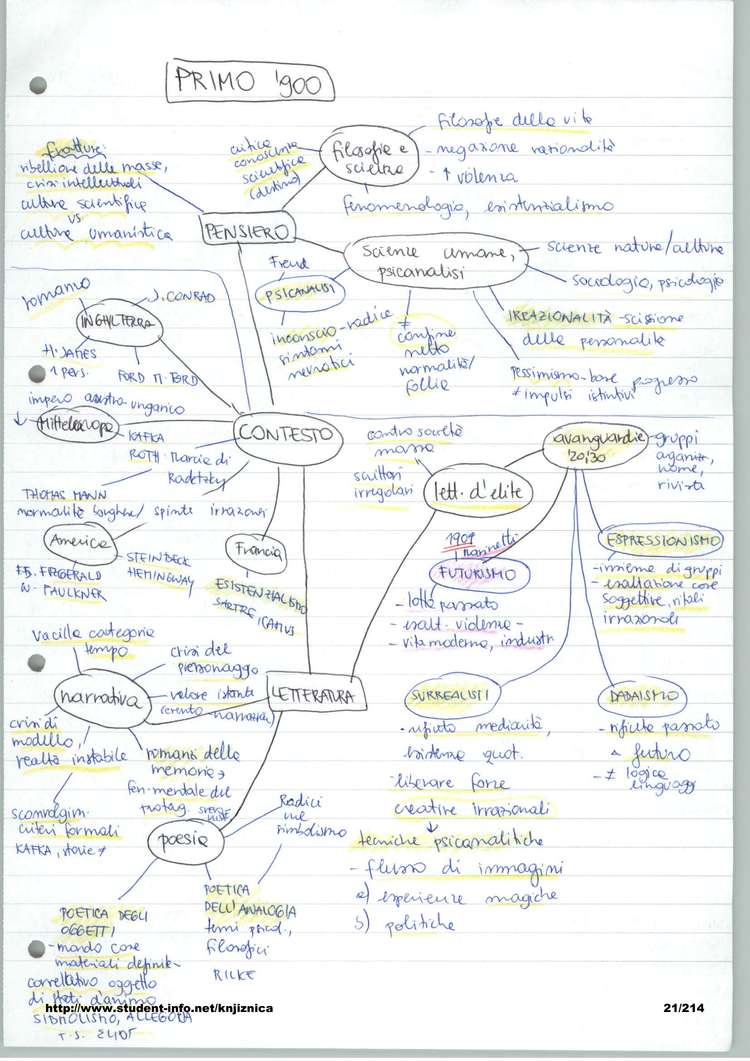 PRIMO '900
fratture:
ribellione delle masse,
crisi intellettuali
culture scientifice
vs
culture umanistica
critica
conoscenza
scientifica
filosofie e
scienze
filosofie della vita
- negazione razionalità
- ↑ violenza
fenomenologia, esistenzialismo
PENSIERO
Scienze umane,
psicanalisi
- scienze nature/culture
sociologia, psicologia
Freud
PSICANALISI
inconscio - radice
sintomi
nevrotici
≠
confine
netto
normalità/
follia
IRRAZIONALITÀ - scissione
della personalità
pessimismo - base progresso
≠ impulsi istintivi
romanzo
J. CONRAD
INGHILTERRA
H. JAMES
1 pers.
FORD M. FORD
impero austro-ungarico
↓ Mitteleuropa
KAFKA
ROTH - Marcia di
Radetzky
THOMAS MANN
normalità borghese / spinte irrazionali
CONTESTO
America
F.S. FITZGERALD
W. FAULKNER
STEINBECK
HEMINGWAY
Francia
ESISTENZIALISMO
SARTRE, CAMUS
contro società
massa
scrittori
irregolari
lett. d'elite
avanguardie
'20, '30
- gruppi
nome,
rivista
1909
Marinetti
FUTURISMO
- lotta passato
- esalt. violenza -
- vita moderna, industr
ESPRESSIONISMO
- insieme di gruppi
- esaltazione cose
soggettive, rituali
irrazionali
SURREALISTI
- rifiuto mediocrità,
esistenza quot.
- liberare forze
creative irrazionali
↓
tecniche psicanalitiche
- flusso di immagini
a) esperienze magiche
b) politiche
DADAISMO
- rifiuto passato
e futuro
- ≠ logica
linguaggi
LETTERATURA
vacilla categoria
tempo
crisi del
personaggio
- valore istante
(evento narrazion)
narrativa
crisi di
modello,
realtà instabile
romanzi della
memoria →
fen. mentale del
protag.
sconvolgim.
criteri formali
KAFKA, storie ≠
poesia
Radici
nel
simbolismo
POETICA DEGLI
OGGETTI
- mondo cose
materiali definite -
correlativo oggetto
di stati d'animo
SIMBOLISMO, ALLEGORIA
T.S. ELIOT
POETICA
DELL'ANALOGIA
temi psicol.,
filosofici
RILKE
http://www.student-info.net/knjiznica
21/214